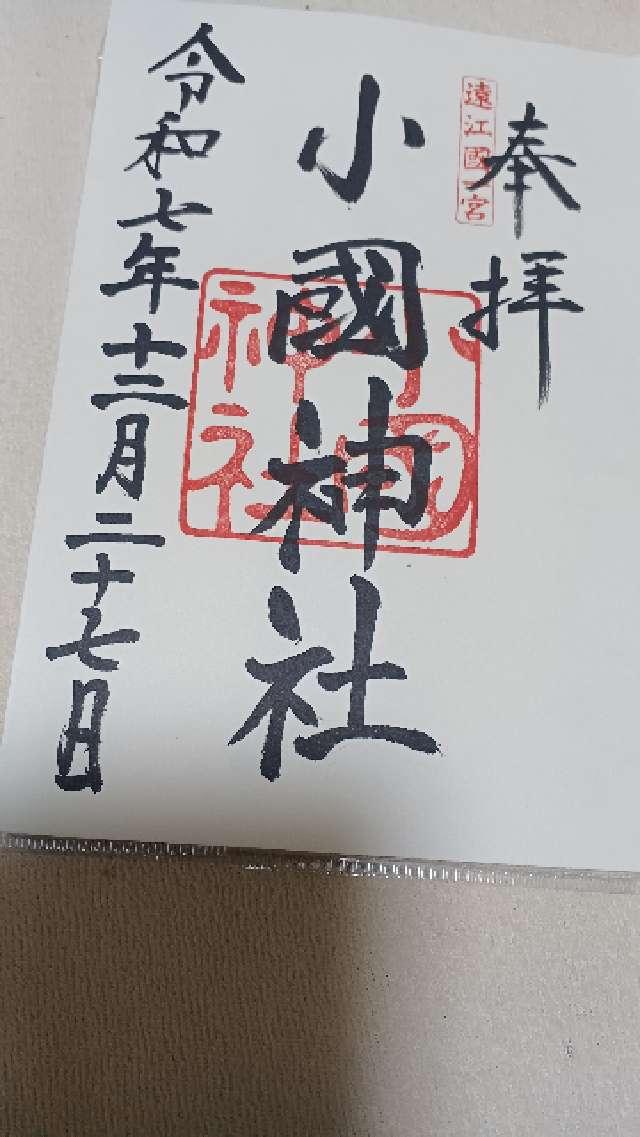 奉拝
遠江國一宮
小國神社
小國
神社
令和七年十二月二十七日